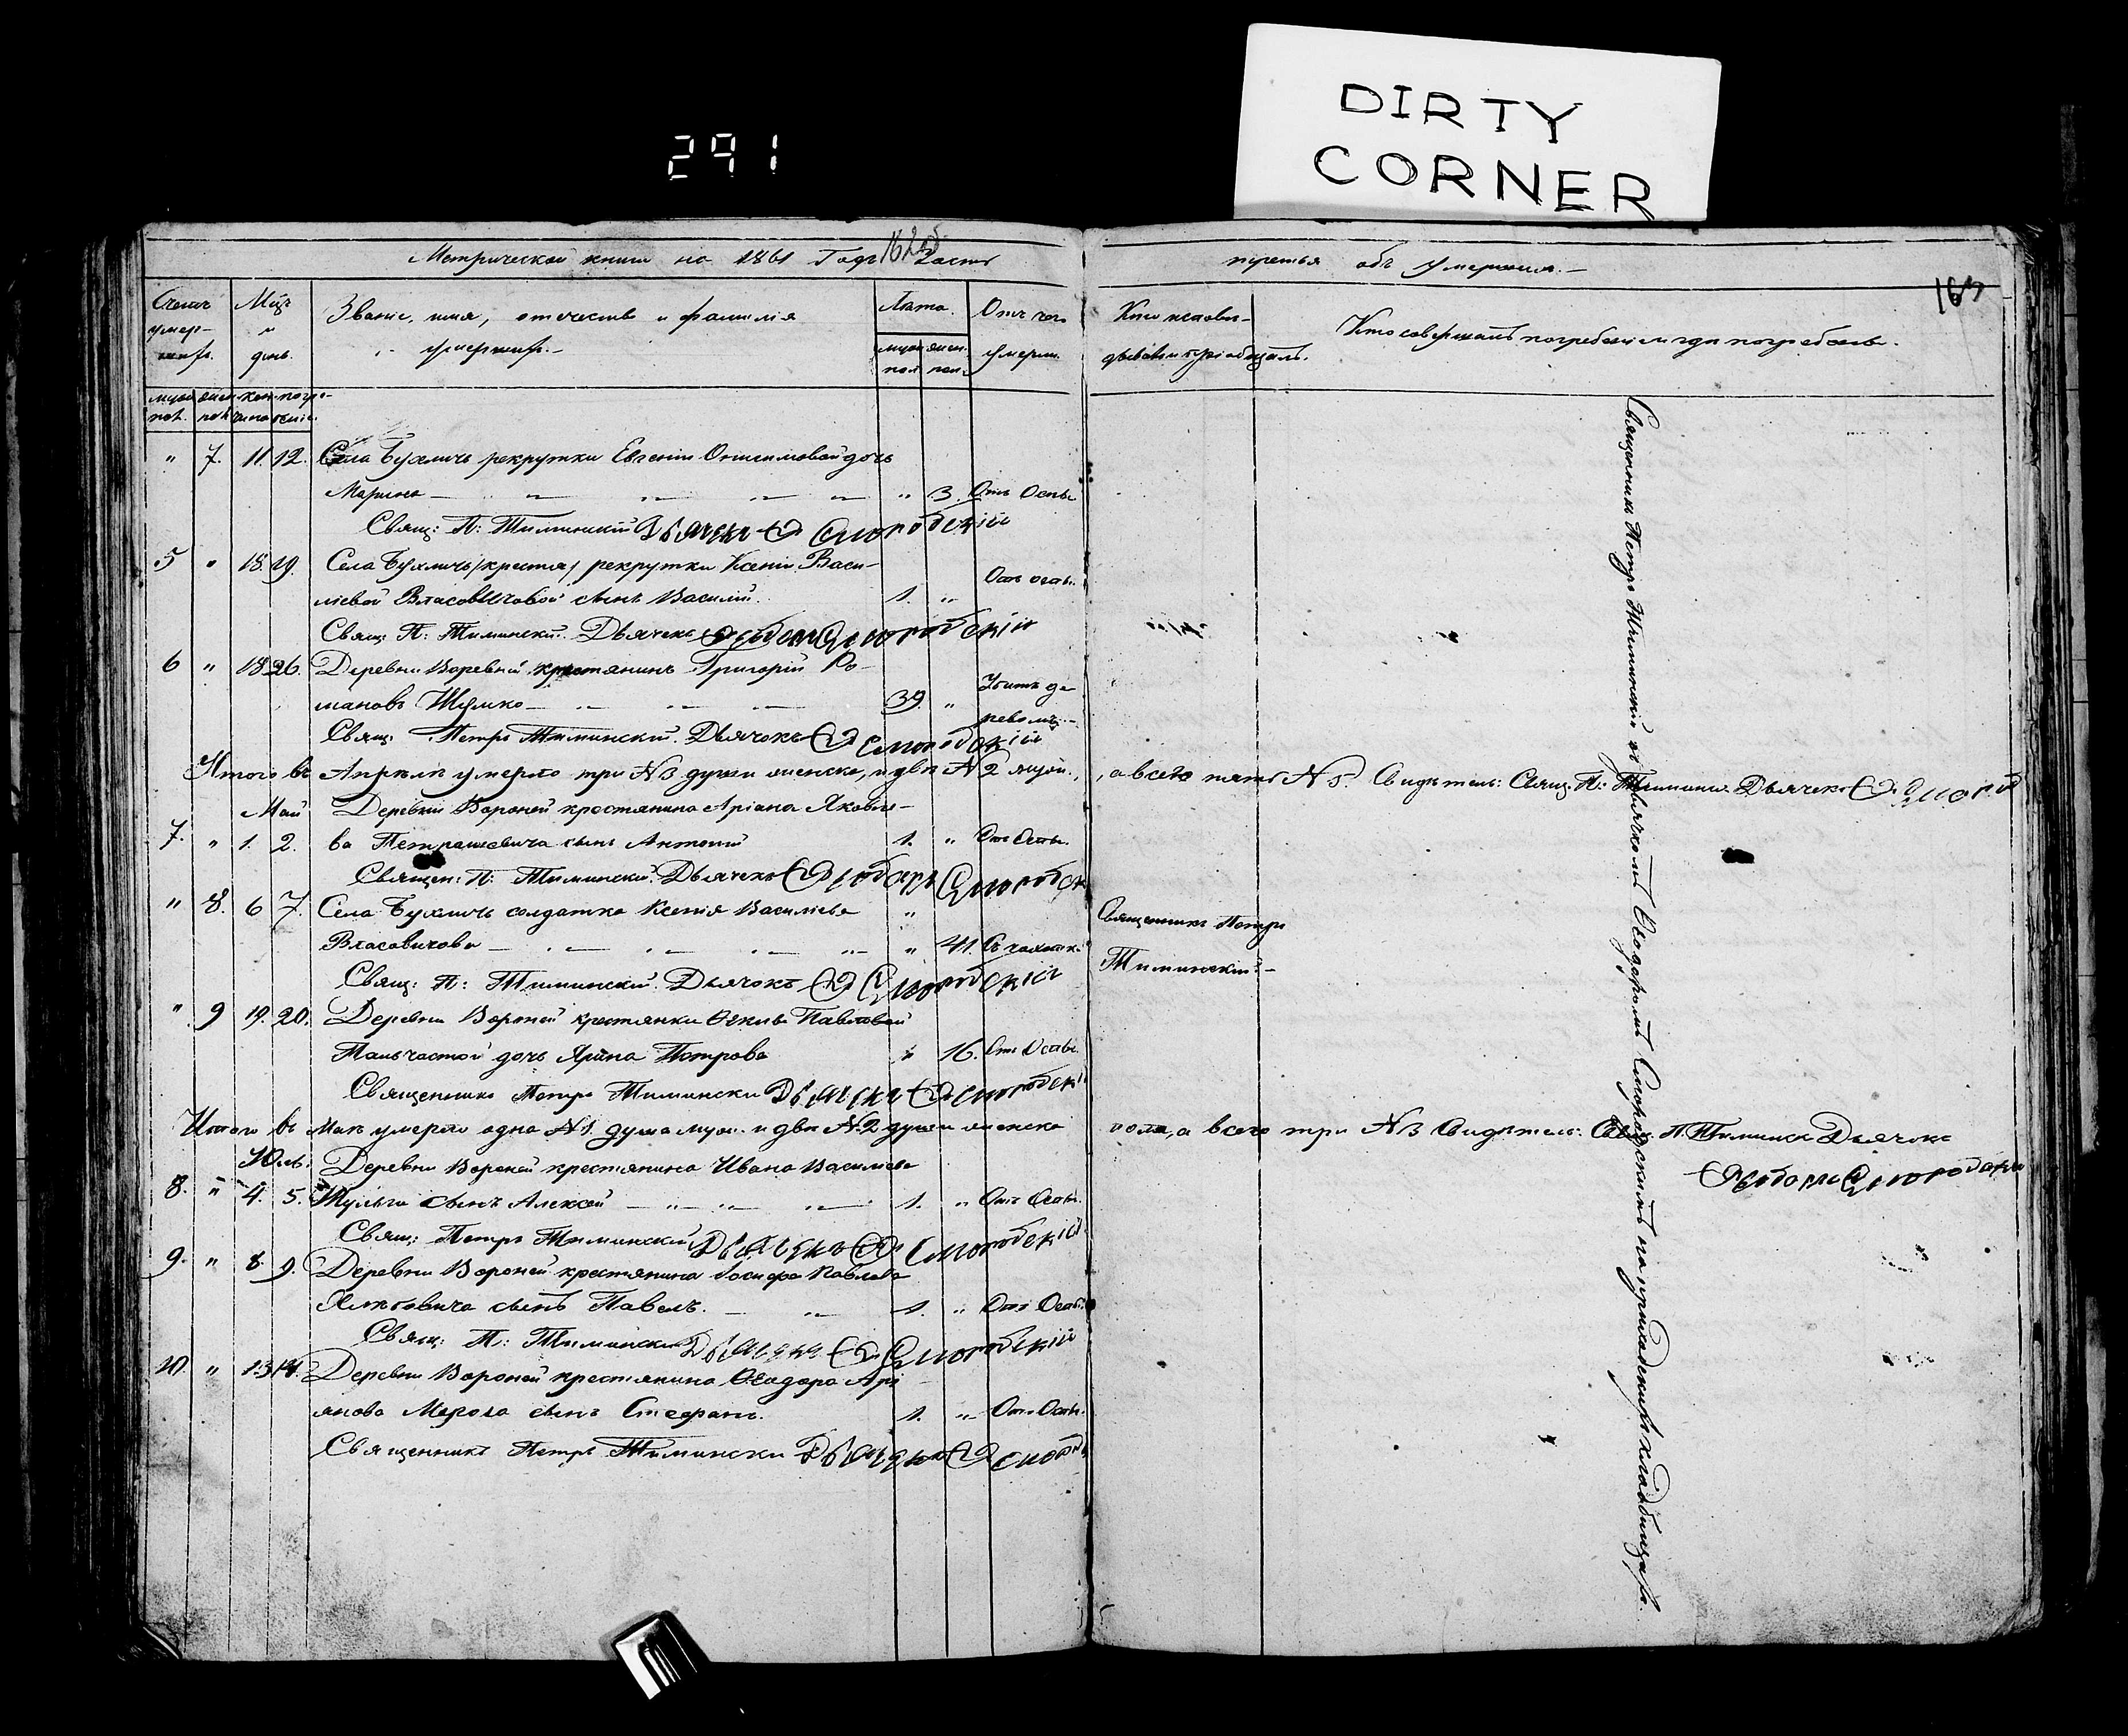 291
DIRTY
CORNER
162об.
Метрической книги на 1861 Годъ Часть
третья объ умершихъ.—
163
Счетъ умер-шихъ.
Мцъ и день.
Званіе, имя, отчество и фамилія
умершихъ.—
Лѣта.
Отъ чего
умеръ.
Кто исповѣ-
дывалъ и пріобщалъ.
Кто совершалъ погребеніе и гдѣ погребенъ.
муж. пол. жен. пол. кон-чина погре-беніе.
муж. пол. жен. пол.
" 7. 11. 12. Села Бухличь рекрутки Евгеніи Онисимовой дочь
Марина — " 3. Отъ Оспы
Свящ: П: Тиминскій Дьячекъ Ѳ Смородскій
5 " 18. 19. Села Бухличь /крестья/ рекрутки Ксеніи Васи-
ліевой Власовичовой сынъ Василій. 1. " Отъ оспы.
Свящ: П: Тиминскій. Дьячекъ Ѳеодоръ Смородскій
6 " 18 26. Деревни Вороней крестянинъ Григорій Ро-
мановъ Шумко — 39. " Убитъ де-
ревомъ.—
Свящ: Петръ Тиминскій. Дьячокъ Ѳ Смородскій
Итого въ Апрѣлѣ умерло три №3 души женска, и двѣ №2 муж., а всего пять №5. Свидѣтель: Свящ. П: Тимински Дьячекъ Ѳ Смород
Май Деревни Вороней крестянина Аріана Яковле-
7. " 1. 2. ва Петрашевича сынъ Антоній 1. " Отъ Оспы.
Священ: П: Тиминскій. Дьячекъ Ѳеодоръ Смородск
" 8. 6 7. Села Бухличь солдатка Ксенія Василіева "
Власовичова — " 41. Съ чахотки
Священникъ Петръ
Тиминскій.—
Свящ: П: Тиминскій. Дьячокъ Ѳ Смородскій
" 9 19. 20. Деревни Вороней крестянки Ѳеклы Павловой
дочь Ярина Петрова " 16. Отъ Оспы.
Священникъ Петръ Тимински Дьячекъ Ѳ Смородскі
Итого въ Маѣ умерло одна №1. душа муж. и двѣ №2 души женска пола, а всего три №3 Свидѣтель: Свящ. П. Тимински Дьячекъ
Ѳеодоръ Смородски
Юль. Деревни Вороней крестянина Ивана Василіева
8. " 4. 5. сынъ Алексѣй — 1. " Отъ Оспы.
Свящ: Петръ Тиминскій Дьячекъ Ѳ Смородскій
9. " 8. 9. Деревни Вороней крестянина Іосифа Павлова
сынъ Павелъ. — 1. " Отъ Оспы.
Свящ: П: Тимински Дьячекъ Ѳ Смородскій
10. " 13 14. Деревни Вороней крестянина Ѳеодора Арі
янова Мороза сынъ Стефанъ. 1. " Отъ Оспы.
Священникъ Петръ Тимински Дьячекъ Ѳ Смород
Священникъ Петръ Тиминскій съ дьячкомъ Ѳеодоромъ Смородскимъ на приходскихъ кладбищахъ.